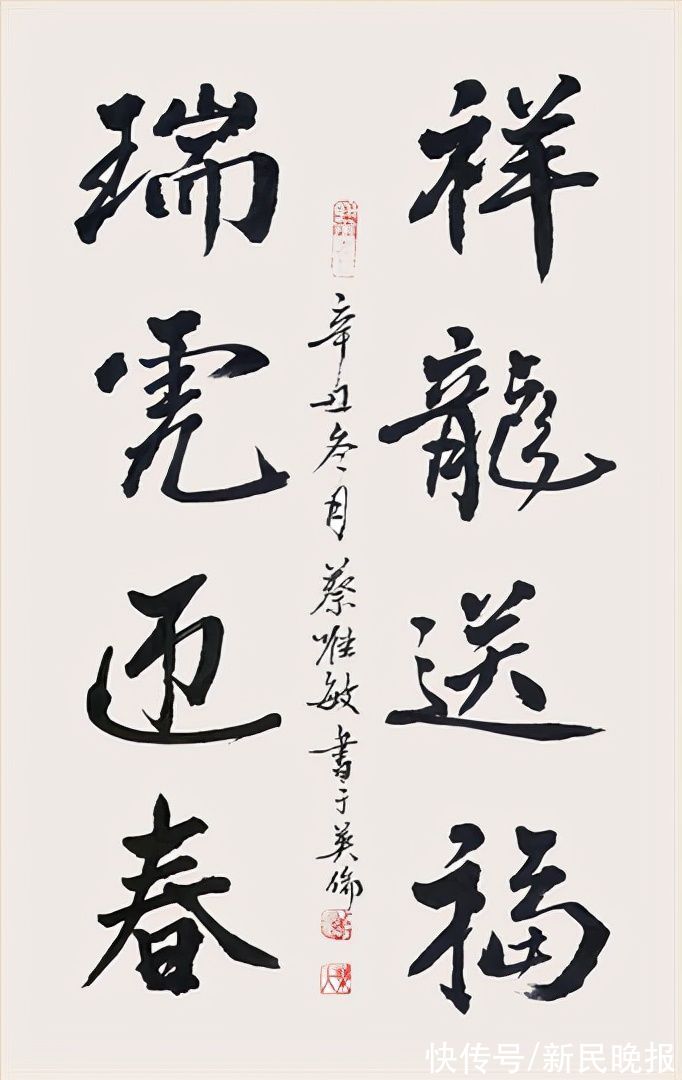 祥龍送福
瑞虎迎春
辛丑冬月蔡唯敏書于英倫
快传号/新民晚报